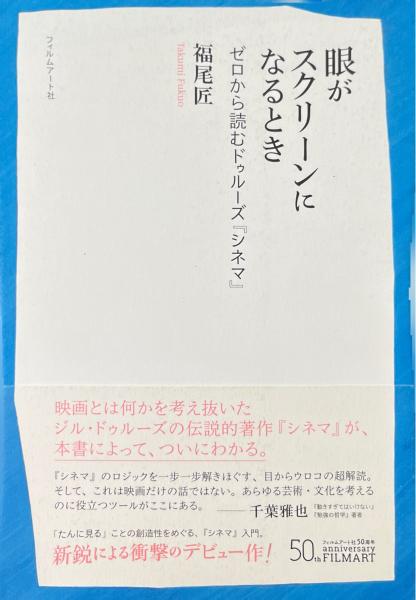 眼が
スクリーンに
なるとき
ゼロから読むドゥルーズ『シネマ』
福尾匠
Takumi Fukuo
フィルムアート社
映画とは何かを考え抜いた
ジル・ドゥルーズの伝説的著作『シネマ』が、
本書によって、ついにわかる。
『シネマ』のロジックを一歩一歩解きほぐす、目からウロコの超解読。
そして、これは映画だけの話ではない。あらゆる芸術・文化を考える
のに役立つツールがここにある。
——千葉雅也
『動きすぎてはいけない』
『勉強の哲学』著者
「たんに見る」ことの創造性をめぐる、『シネマ』入門。
新鋭による衝撃のデビュー作!
フィルムアート社50周年
50th anniversary
FILMART